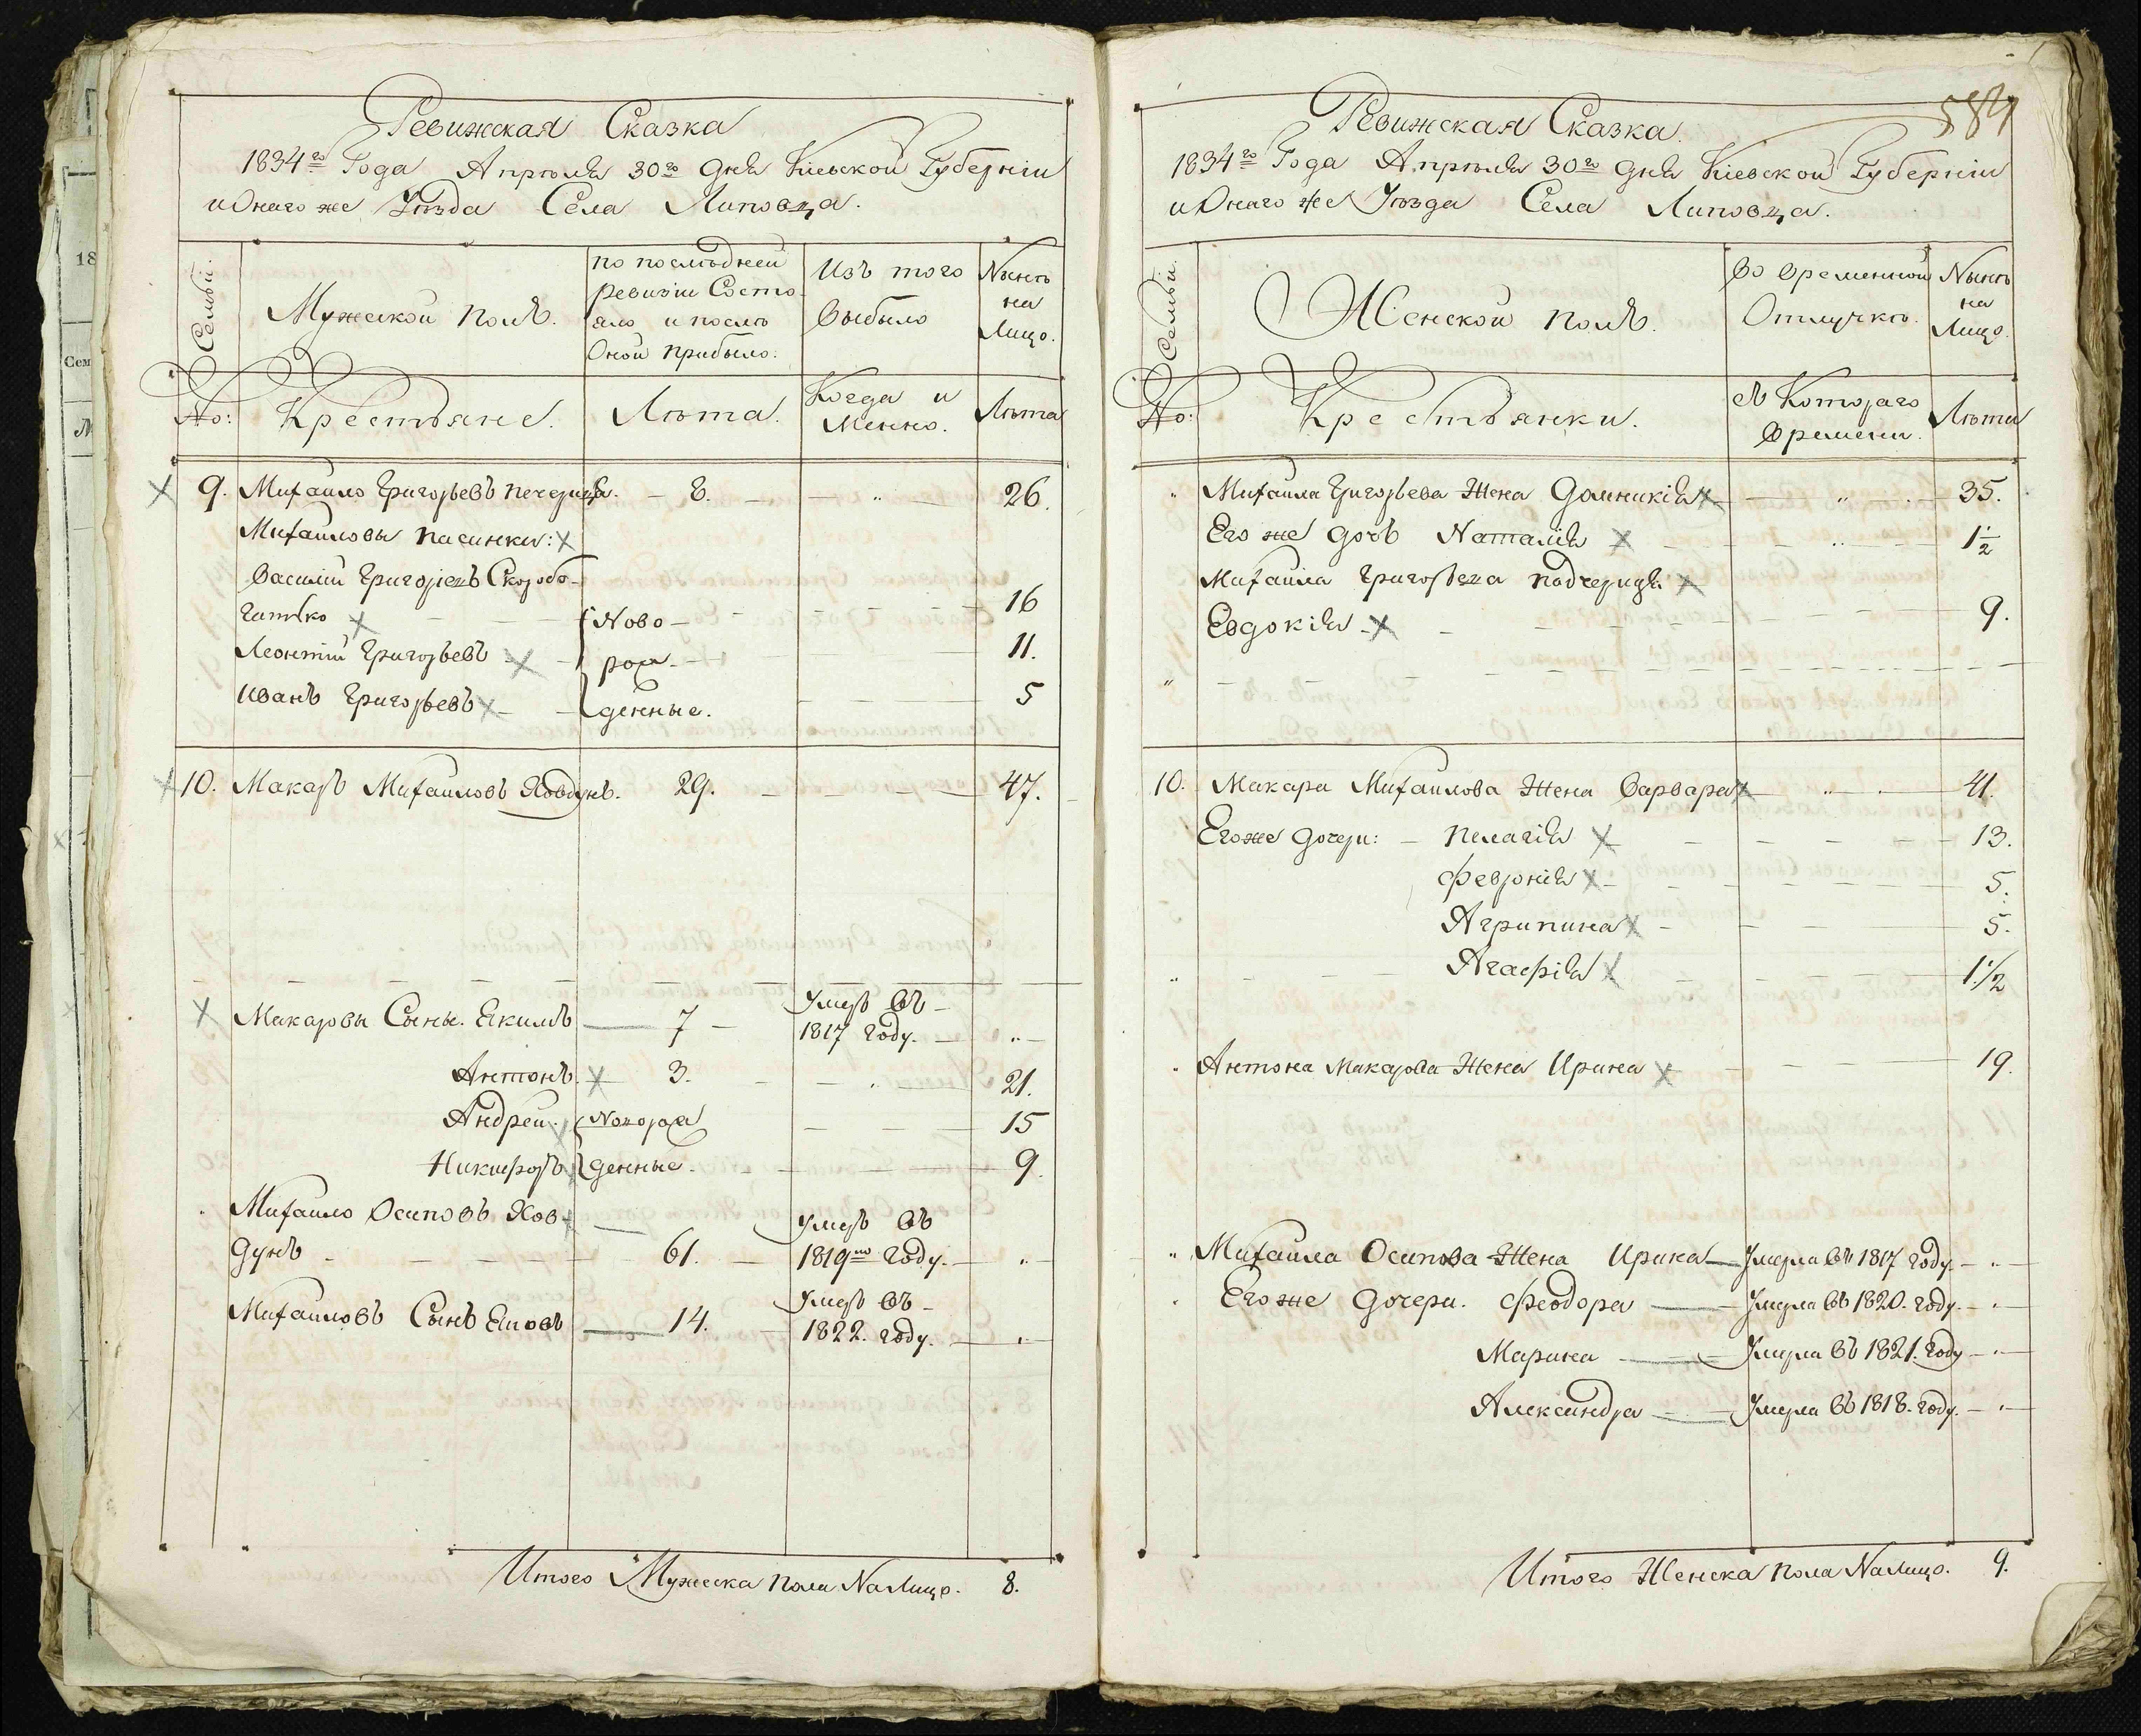 Ревижская Сказка
1834го Года Апрѣля 30го дня Кіевской Губерніи
и Онаго же Уѣзда Села Липовца.
Семьи.
Мужеской полъ.
по послѣдней
ревизіи Состо-
яло и послѣ
Оной прибыло.
Изъ того
Выбыло
Нынѣ
на
Лицо.
No:
Крестьяне.
Лѣта.
Когда и
Менно.
Лѣта
9. Михайло Григорьевъ - 8. - - „ - 26.
Михайловы пасинки:
Василій Григоріевъ Скоробо-
гатько - - - 16
Ново-
Леонтій Григорьевъ - - 11.
рож-
Иванъ Григорьевъ - - 5
денные.
10. Макаръ Михайловъ Ховдунъ. 29. - - - 47.
Макаровы Сыны. Екимъ - 7 - Умеръ въ -
1817 году. - „ -
Антонъ. 3. - - „ - 21.
Андрей. Новорож - - - 15
Никифоръ денные. - - - 9.
Михайло Осиповъ Хов-
дунъ - - - 61. - Умеръ въ
1819мъ году. - „
Михайловъ Сынъ - 14. - Умеръ въ -
1822. году. - „ -
Итого Мужеска пола На Лицо. 8.
584
Ревижская Сказка.
1834го Года Апрѣля 30го дня Кіевской Губерніи
и Онаго же Уѣзда Села Липовца.
Семьи.
Женской полъ.
Во временной
Отлучкѣ.
Нынѣ
на
Лицо.
No:
Крестьянки.
съ Котораго
Времени.
Лѣта
„ Михайла Григорьева Жена Домникія - „ - 35.
Его же дочь Наталія - - „ - 1 1/2
Михайла Григорьева подчерица
Евдокія - - - 9.
10. Макара Михайлова Жена Варвара - „ - 41.
Его же дочери: - Пелагія - - - 13.
Февронія - - - 5.
Агрипина - - - 5.
„ - - Агафія - - - 1 1/2
„ Антона Макарова Жена Ирина - - - 19.
„ Михайла Осипова Жена Ирина - Умерла въ 1817 году - „ -
„ Его же дочери. Феодора - Умерла въ 1820. году. - „ -
Марина - Умерла въ 1821. году - „ -
Александра - Умерла въ 1818. году. - „ -
Итого Женска пола На Лицо. 9.